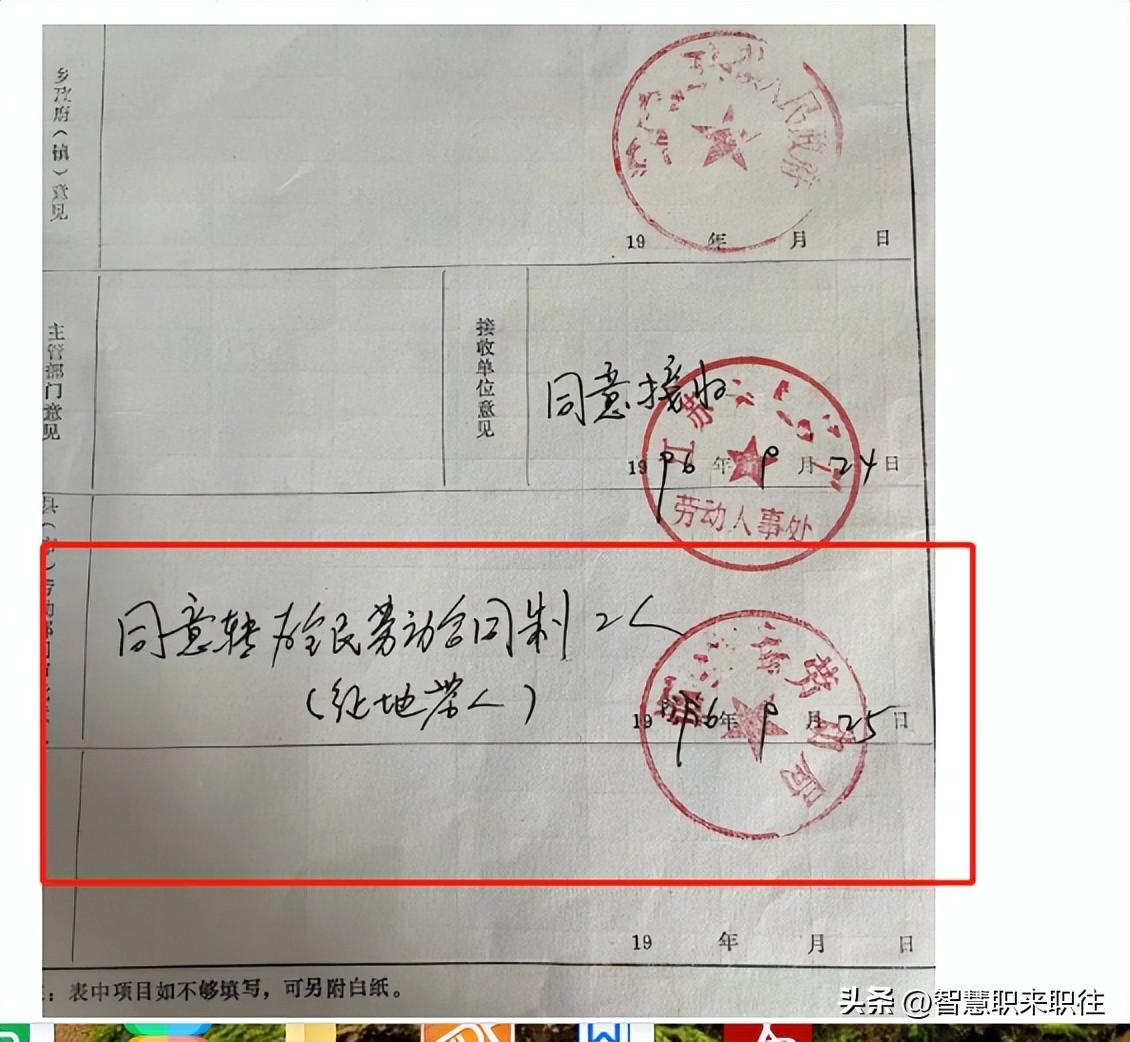 乡政府（镇）意见
人民政府
19 年 月 日
主管部门意见
接收单位意见
同意接收
江苏
劳动人事处
1996年9月24日
同意转为全民劳动合同制工人
（征地带人）
劳动局
1996年9月25日
19 年 月 日
注：表中项目如不够填写，可另附白纸。
头条 @智慧职来职往